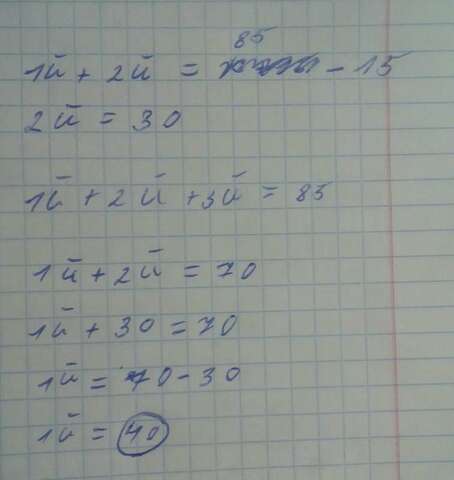 85
1й + 2й = - 15
2й = 30
1й + 2й + 3й = 85
1й + 2й = 70
1й + 30 = 70
1й = 70 - 30
1й = 40